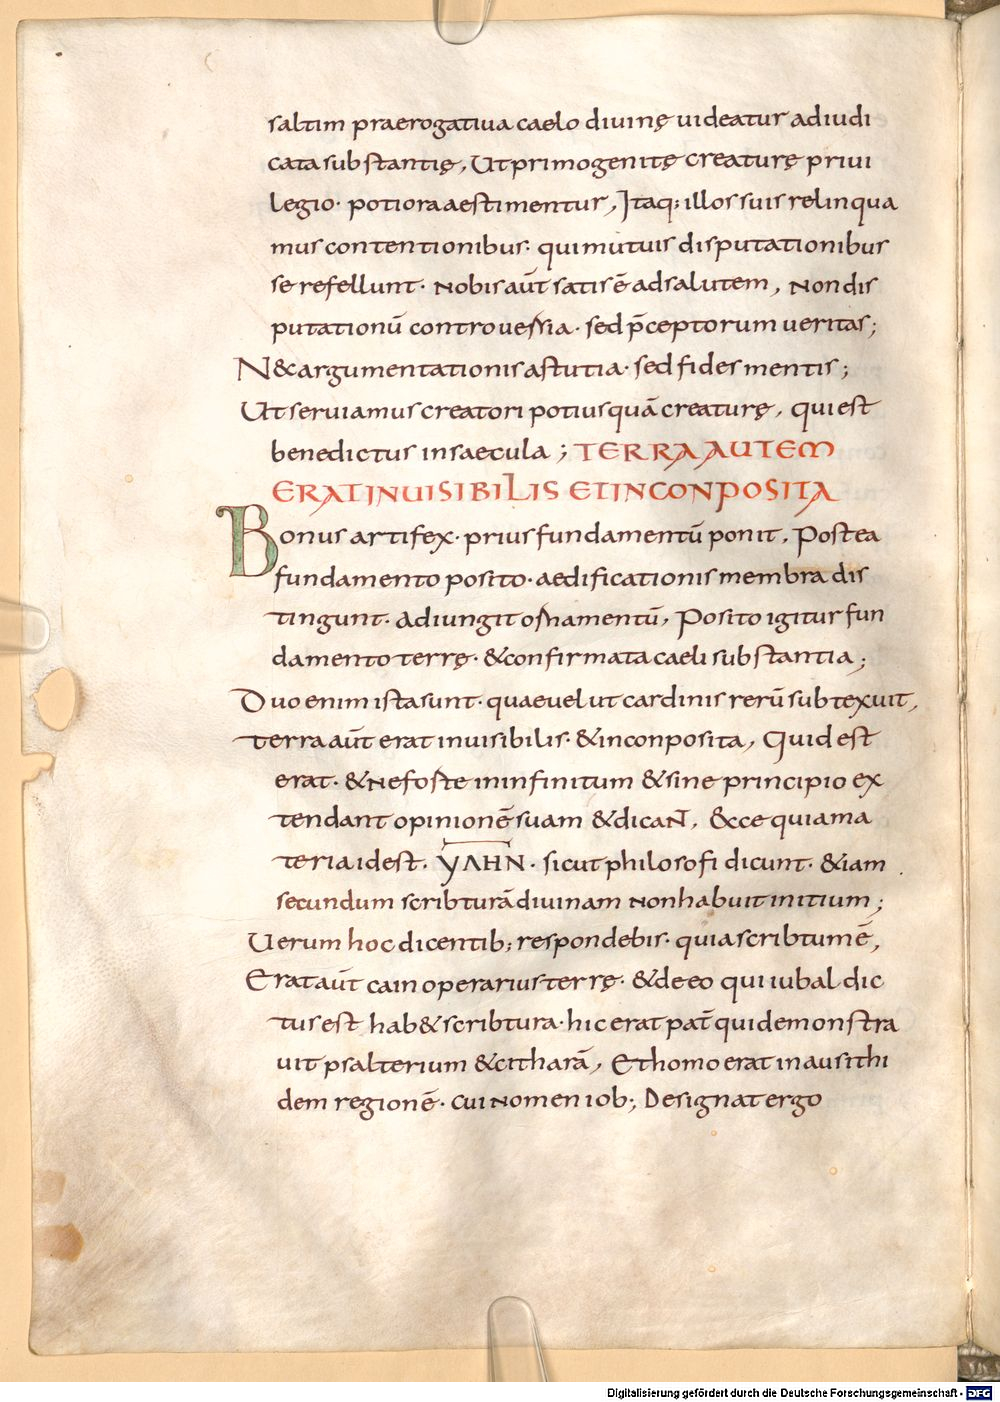 saltim praerogatiua caelo diuinę uideatur adiudi
cata substantię, Ut primogenitę creaturę priui
legio· potiora aestimentur, Itaq; illos suis relinqua
mus contentionibus· qui mutuis disputationibus
se refellunt· Nobis aūt satis ē ad salutem, Non dis
putationū controuessia· sed p̄ceptorum ueritas;
N&c argumentationis astutia· sed fides mentis;
Ut seruiamus creatori potius quā creaturę, qui est
benedictus in saecula; TERRA AUTEM
ERAT INUISIBILIS ET INCONPOSITA
Bonus artifex· prius fundamentū ponit, Postea
fundamento posito· aedificationis membra dis
tingunt· adiungit ornamentū, Posito igitur fun
damento terrę· & confirmata caeli substantia;
Duo enim ista sunt· quae uel ut cardinis rerū subtexuit,
terra aūt erat inuisibilis· & inconposita, Quid est
erat· & Ne foste in infinitum & sine principio ex
tendant opinionē suam & dicaNT, &cce quia ma
teria id est· ΥΛΗΝ· sicut philosofi dicunt· &iam
secundum scribturā diuinam non habuit initium;
Uerum hoc dicentib; respondebis· quia scribtum ē,
Erat aūt cain operarius terrę· & de eo qui iubal dic
tus est hab& scribtura· hic erat pat̄ qui demonstra
uit psalterium & citharā, Et homo erat in ausithi
dem regionē· cui Nomen iob; Designat ergo
Digitalisierung gefördert durch die Deutsche Forschungsgemeinschaft - DFG